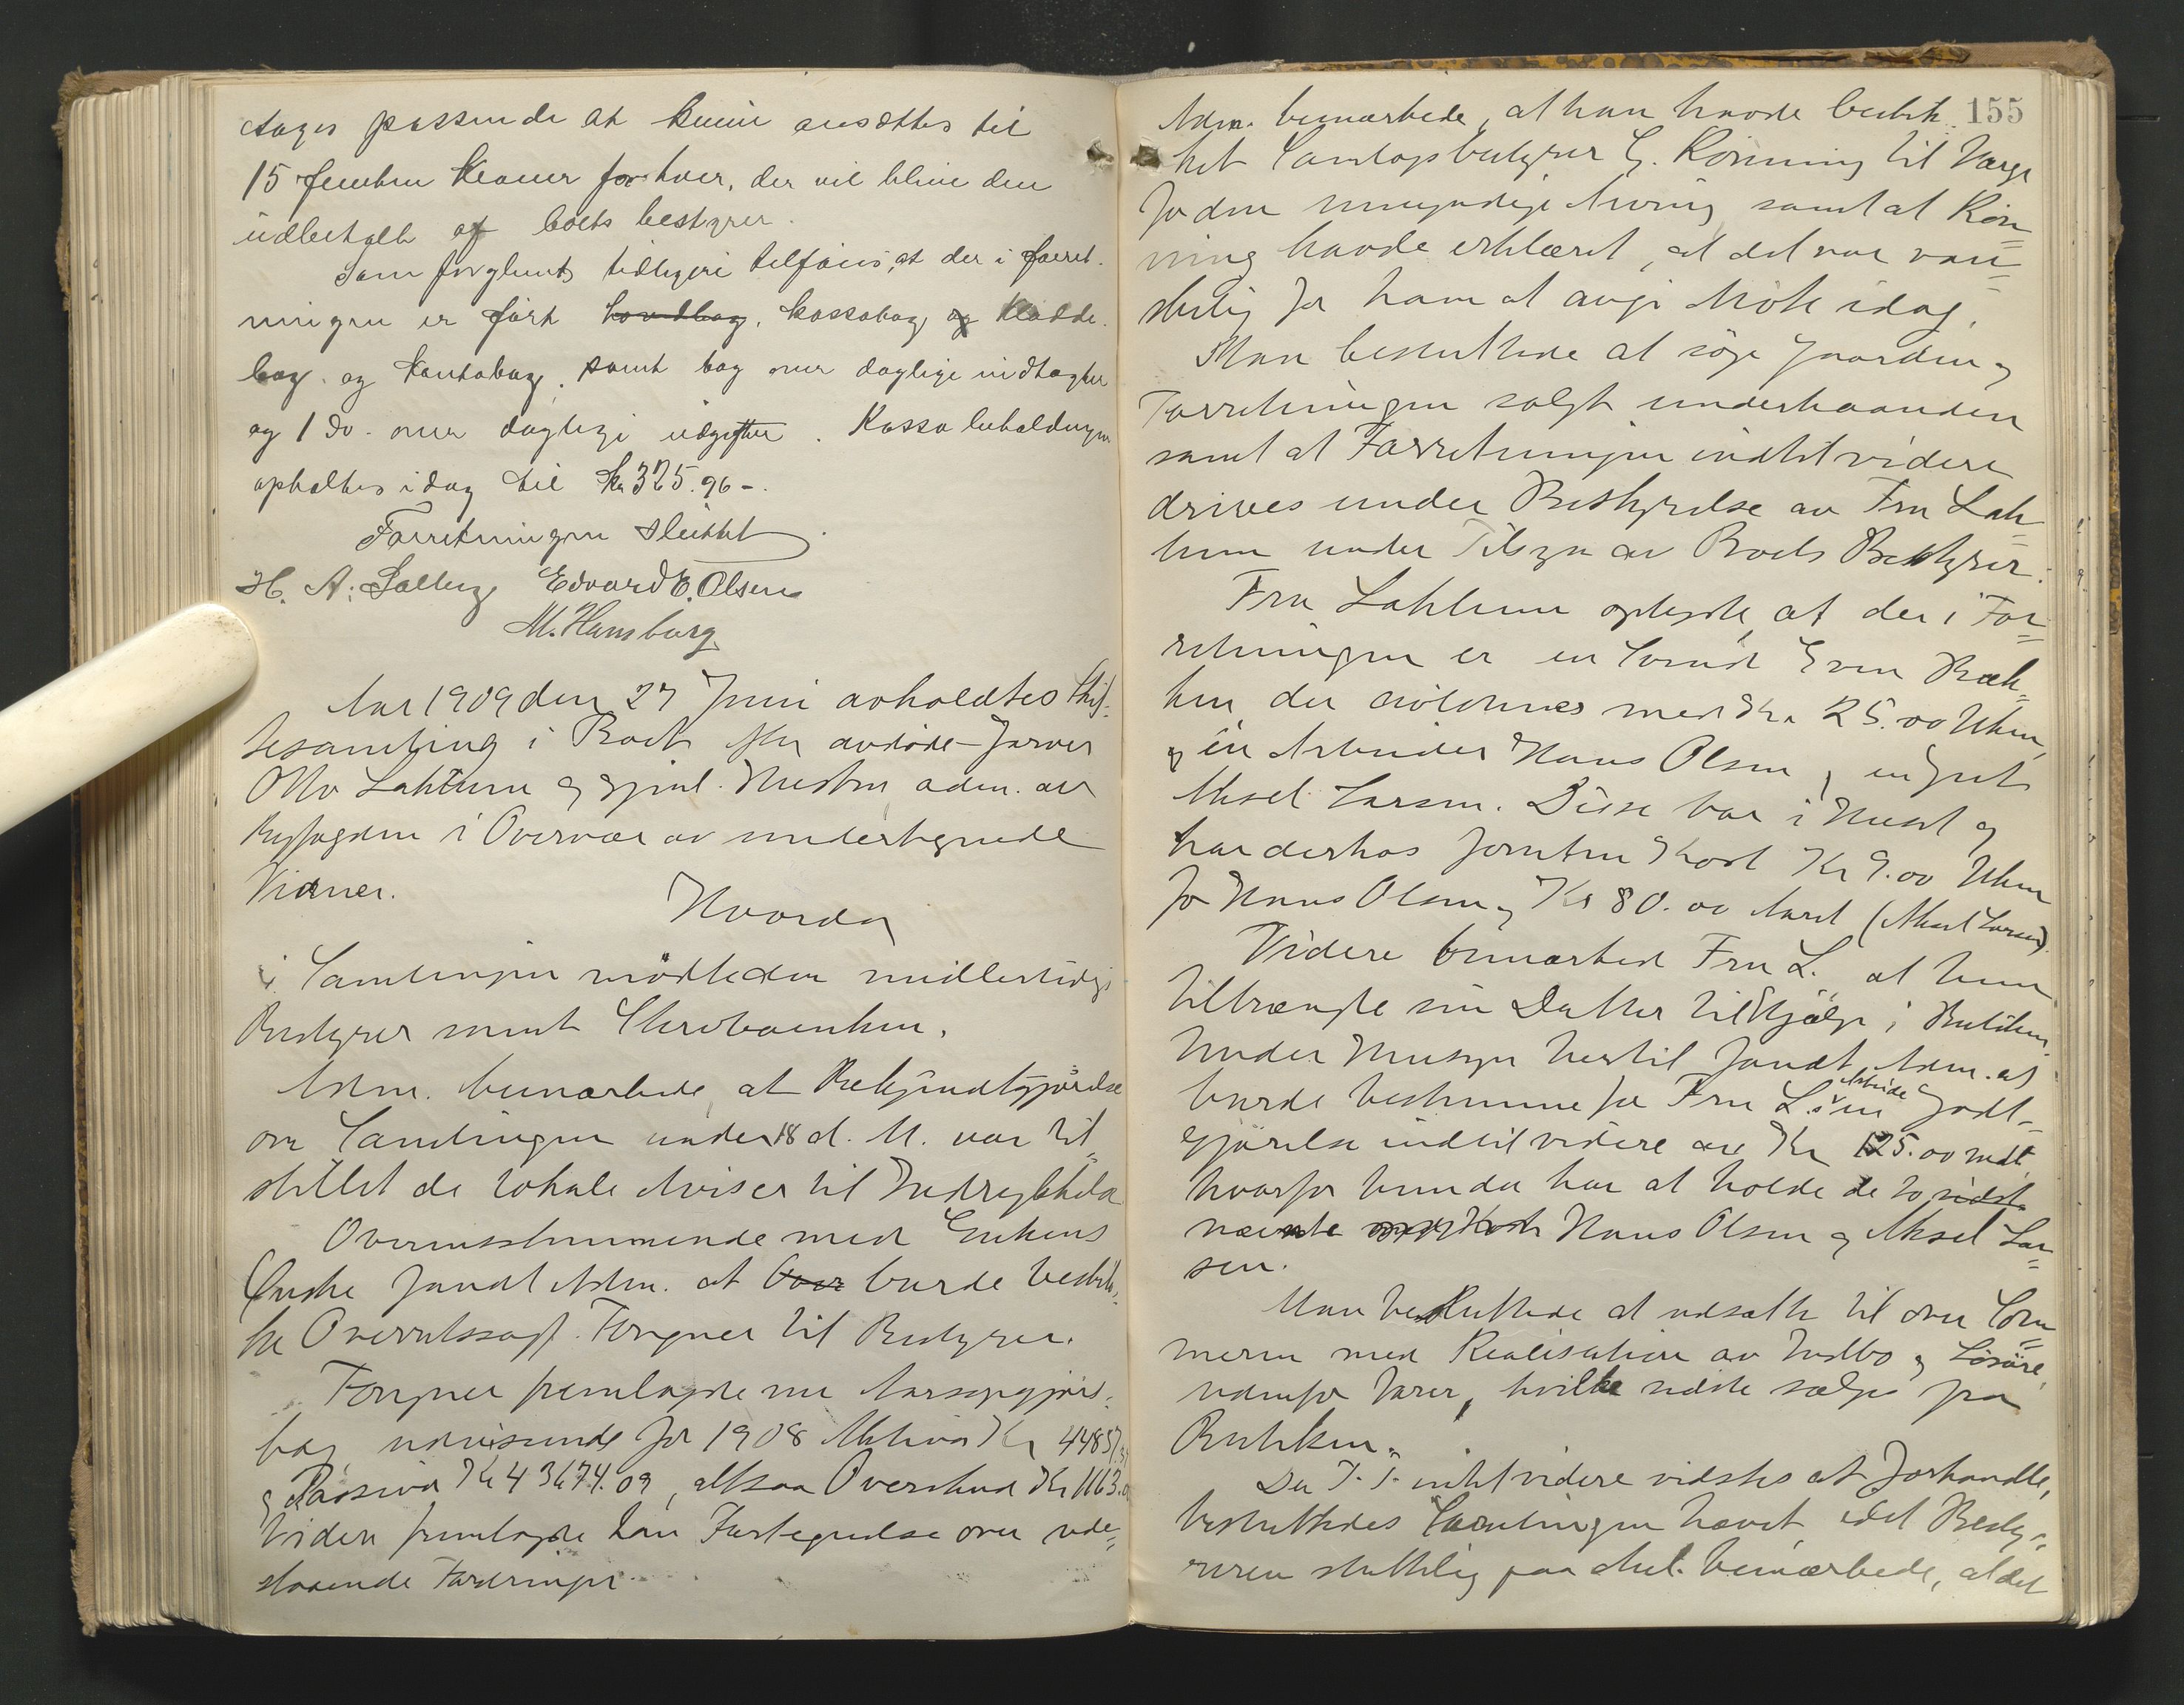 tages passende at kunne ansættes til
15 femten Kroner for hver, der vil blive dem
udbetalt af boets bestyrer.
Som forglemt tidligere tilføies, at der i forret-
ningen er ført hovedbog, kassabog og kladde-
bog og kontobog, samt bog over daglige indtægter
og 1 do. over daglige udgifter. Kassabeholdningen
optaltes idag til kr 325.96-.
Forretningen sluttet
H. A. Salberg Edvard E. Olsen
M. Hamborg
Aar 1909 den 27 Juni avholdtes Skif-
tesamling i Boet efter avdøde Farver
Otto Lahlum og gjenl. Hustru adm. av
Byfogden i Overvær av undertegnede
Vidner.
Hvorda
i Samlingen mødte den midlertidige
Bestyrer samt Skrivtænken.
Adm. bemærkede, at Bekjendtgjørelse
om Samlingen under 18 d. M. var til-
stillet de lokale Aviser til Indrykkelse
Overensstemmende med Enkens
Ønske fandt Adm. at Boer burde beskik-
ke Overretssagf. Fougner til Bestyrer.
Fougner fremlagde nu Aarsopgjørs-
bog, udvisende for 1908 Aktiva Kr 44837
og Passiva Kr 43674.09, altsaa Overskud Kr 1163.
Videre fremlagde han Fortegnelse over ude-
staaende Fordringer
155
Adm. bemærkede, at han havde beskik-
ket Landopsbestyrer G. Rønning til Værge
for den umyndige Arving samt at Røn-
ning havde erklæret, at det var van-
skelig for ham at avgi Møte idag.
Man besluttede at søge Gaarden og
Forretningen solgt underhaanden
samt at Forretningen indtil videre
drives under Bestyrelse av Fru Lah-
lum under Tilsyn av Boets Bestyrer.
Fru Lahlum oplyste, at der i For-
retningen er en Svend Even Bæk-
ken, der avlønnes med Kr. 25.00 Uken,
og en Arbeider Hans Olsen og en Gut
Aksel Larsen. Disse bor i Huset og
har derhos foruten Kost Kr 9.00 Uken
for Hans Olsen og Kr 80.00 Aaret (Aksel Larsen).
Videre bemærked Fru L., at hun
tiltrængte sin Datter til Hjælp i Butiken.
Under Hensyn hertil fandt Adm. at
burde bestemme for Fru L.s en Arbeids Godt-
gjørelse indtil videre av Kr 125.00 mdt.
hvorfor hun da har at holde de to sidst-
nævnte med Kost Hans Olsen og Aksel Lar-
sen.
Man besluttede at udsætte til over Som-
meren med Realisation av Indbo og Løsøre,
udenfor Varer, hvilke sidste sælges fra
Butiken.
Da I. I. indtil videre vidstes at forhandle,
besluttedes Samlingen hævet idet Besty-
reren skriftlig paa Anl. bemærkede, at det